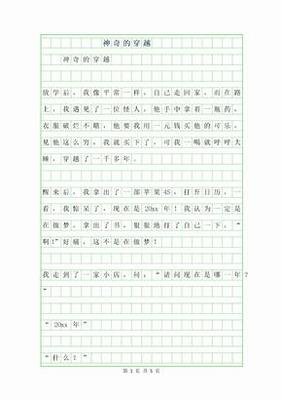 神奇的穿越
神奇的穿越
放学后，我像平常一样，自己走回家。而在路
上，我遇见了一位怪人，他手中拿着一瓶药，
衣服破烂不堪，他要我用一元钱买他的可乐。
见他这么穷，我就买下了，可我一喝就呼呼大
睡，穿越了一千多年。
醒来后，我拿出了一部苹果4S，打开日历，一
看，我惊呆了，现在是20xx年！我认为一定是
在做梦。拿出了书，狠狠地打了自己一下，“
啊！”好痛，这不是在做梦！
我走到了一家小店，问：“请问现在是哪一年？
”
“20xx年”
“什么？”
第 1 页 共 5 页